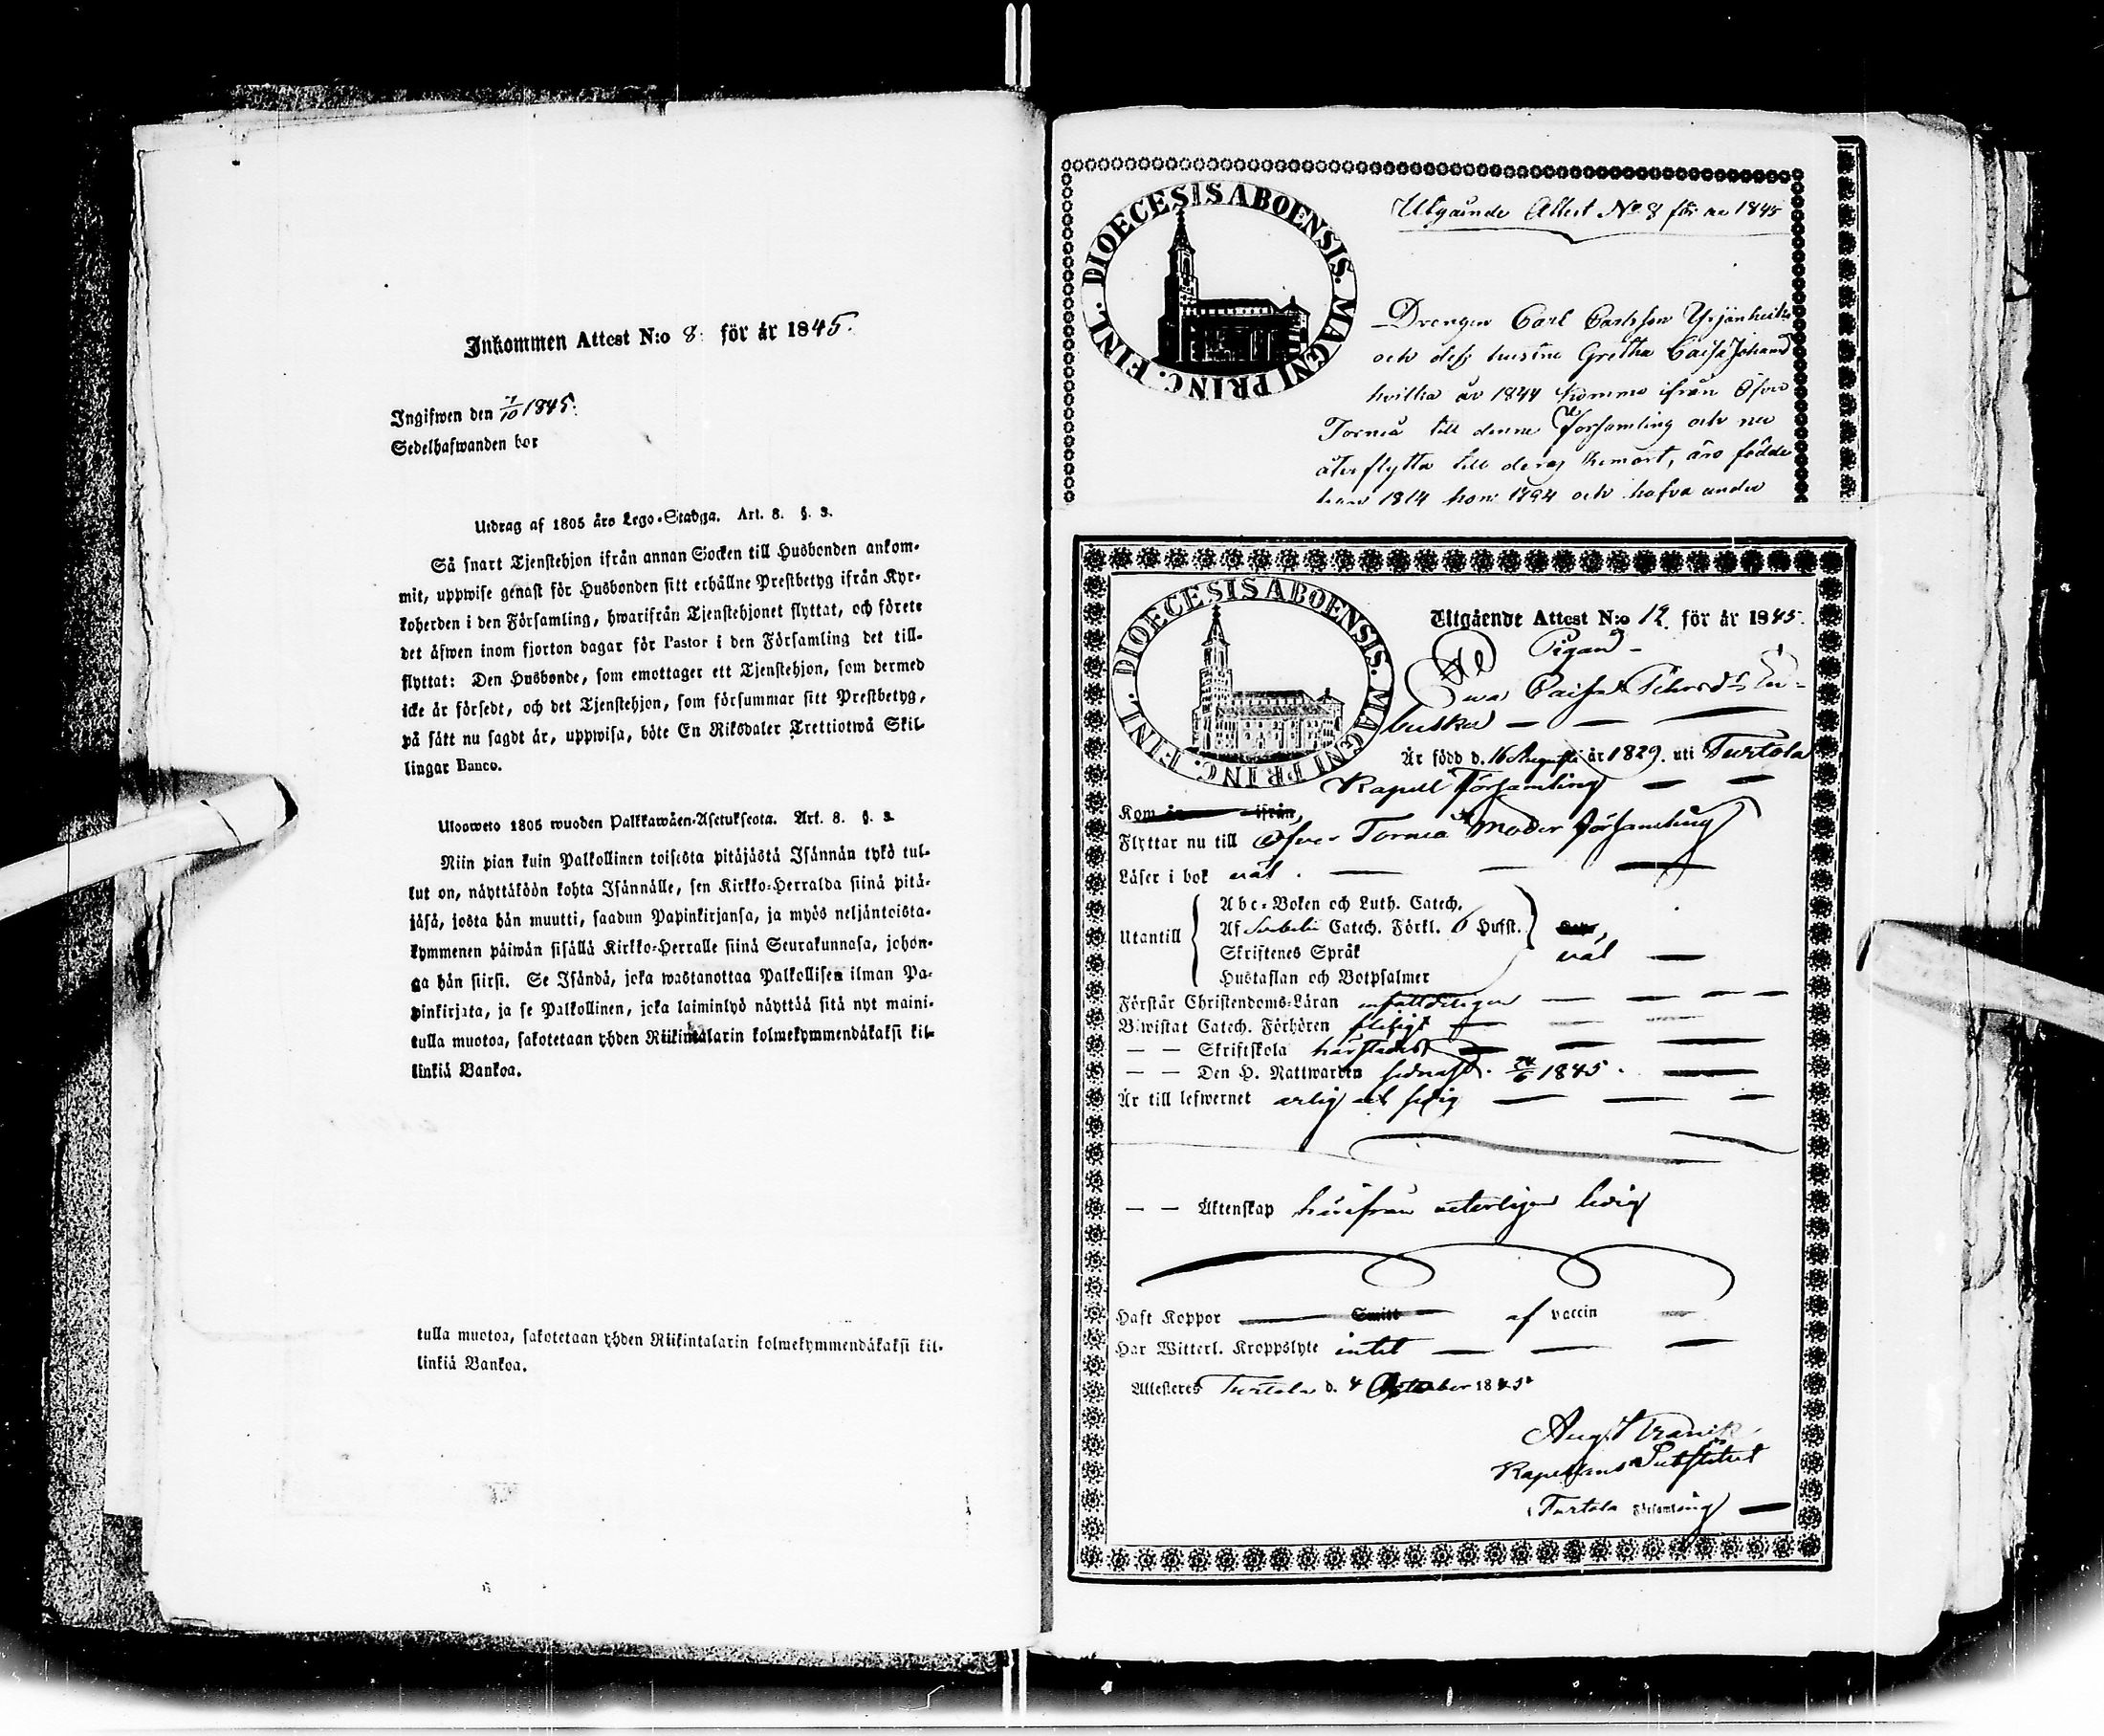 Inkommen Attest N:o 8. för år 1845.
Ingifwen den 7/10 1845.
Sedelhafwanden bor
Utdrag af 1805 års Lego-Stadga. Art. 8. §. 3.
Så snart Tjenstehjon ifrån annan Socken till Husbonden ankom-
mit, uppwise genast för Husbonden sitt erhållne Prestbetyg ifrån Kyr-
koherden i den Församling, hwarifrån Tjenstehjonet flyttat, och förete
det äfwen inom fjorton dagar för Pastor i den Församling det till-
flyttat: Den Husbonde, som emottager ett Tjenstehjon, som dermed
icke är försedt, och det Tjenstehjon, som försummar sitt Prestbetyg,
på sätt nu sagdt är, uppwisa, böte En Riksdaler Trettiotwå Skil-
lingar Banco.
Uloosweto 1805 wuoden Palkkawäen-Asetuksesta. Art. 8. §. 3.
Niin pian kuin Palkollinen toisesta pitäjästä Isännän tykö tul-
lut on, näyttäköön kohta Isännälle, sen Kirkko-Herralda siinä pitä-
jäsä, josta hän muutti, saadun Papinkirjansa, ja myös neljäntoista-
kymmenen päiwän sisällä Kirkko-Herralle siinä Seurakunnasa, johon-
ga hän siirsi. Se Isändä, joka wastanottaa Palkollisen ilman Pa-
pinkirjata, ja se Palkollinen, joka laiminlyö näyttää sitä nyt maini-
tulla muotoa, sakotetaan yhden Riikintalarin kolmekymmendäkaksi kil-
linkiä Bankoa.
tulla muotoa, sakotetaan yhden Riikintalarin kolmekymmendäkaksi kil-
linkiä Bankoa.
DIOECESIS ABOENSIS. MAGNI PRINC. FINL.
Utgående Attest No 8 för år 1845
Drengen Carl Carlsson
och dess hustru Gretha Caisa Johansd
hvilka år 1844 kommo ifrån Öfver
Torneå till denna församling och nu
återflytta till deras hemort, äro födde
han 1814 hon 1794 och hafva under
DIOECESIS ABOENSIS. MAGNI PRINC. FINL.
Utgående Attest N:o 12. för år 1845.
Pigan
Caisa
Är född d. 16 Augusti år 1829. uti Turtola
Kapell Församling
Kom år ifrån
Flyttar nu till Öfver Torneå Moder församling
Läser i bok väl
Abc-Boken och Luth. Catech.
Utantill Af Catech. Förkl. 6 Hufst.
Skriftenes Språk väl
Hustaflan och Botpsalmer
Förstår Christendoms-Läran
Biwistat Catech. Förhören flitigt
Skriftskola härstädes
Den H. Nattwarden sednast 1845.
Är till lefwernet ärlig och sedig
Äktenskap härifrån veterligen ledig
Haft Koppor Smitt af vaccin
Har Witterl. Kroppslyte intet
Attesteras Turtola d. 4 October 1845
Kapellans Substitut
Turtola Församling